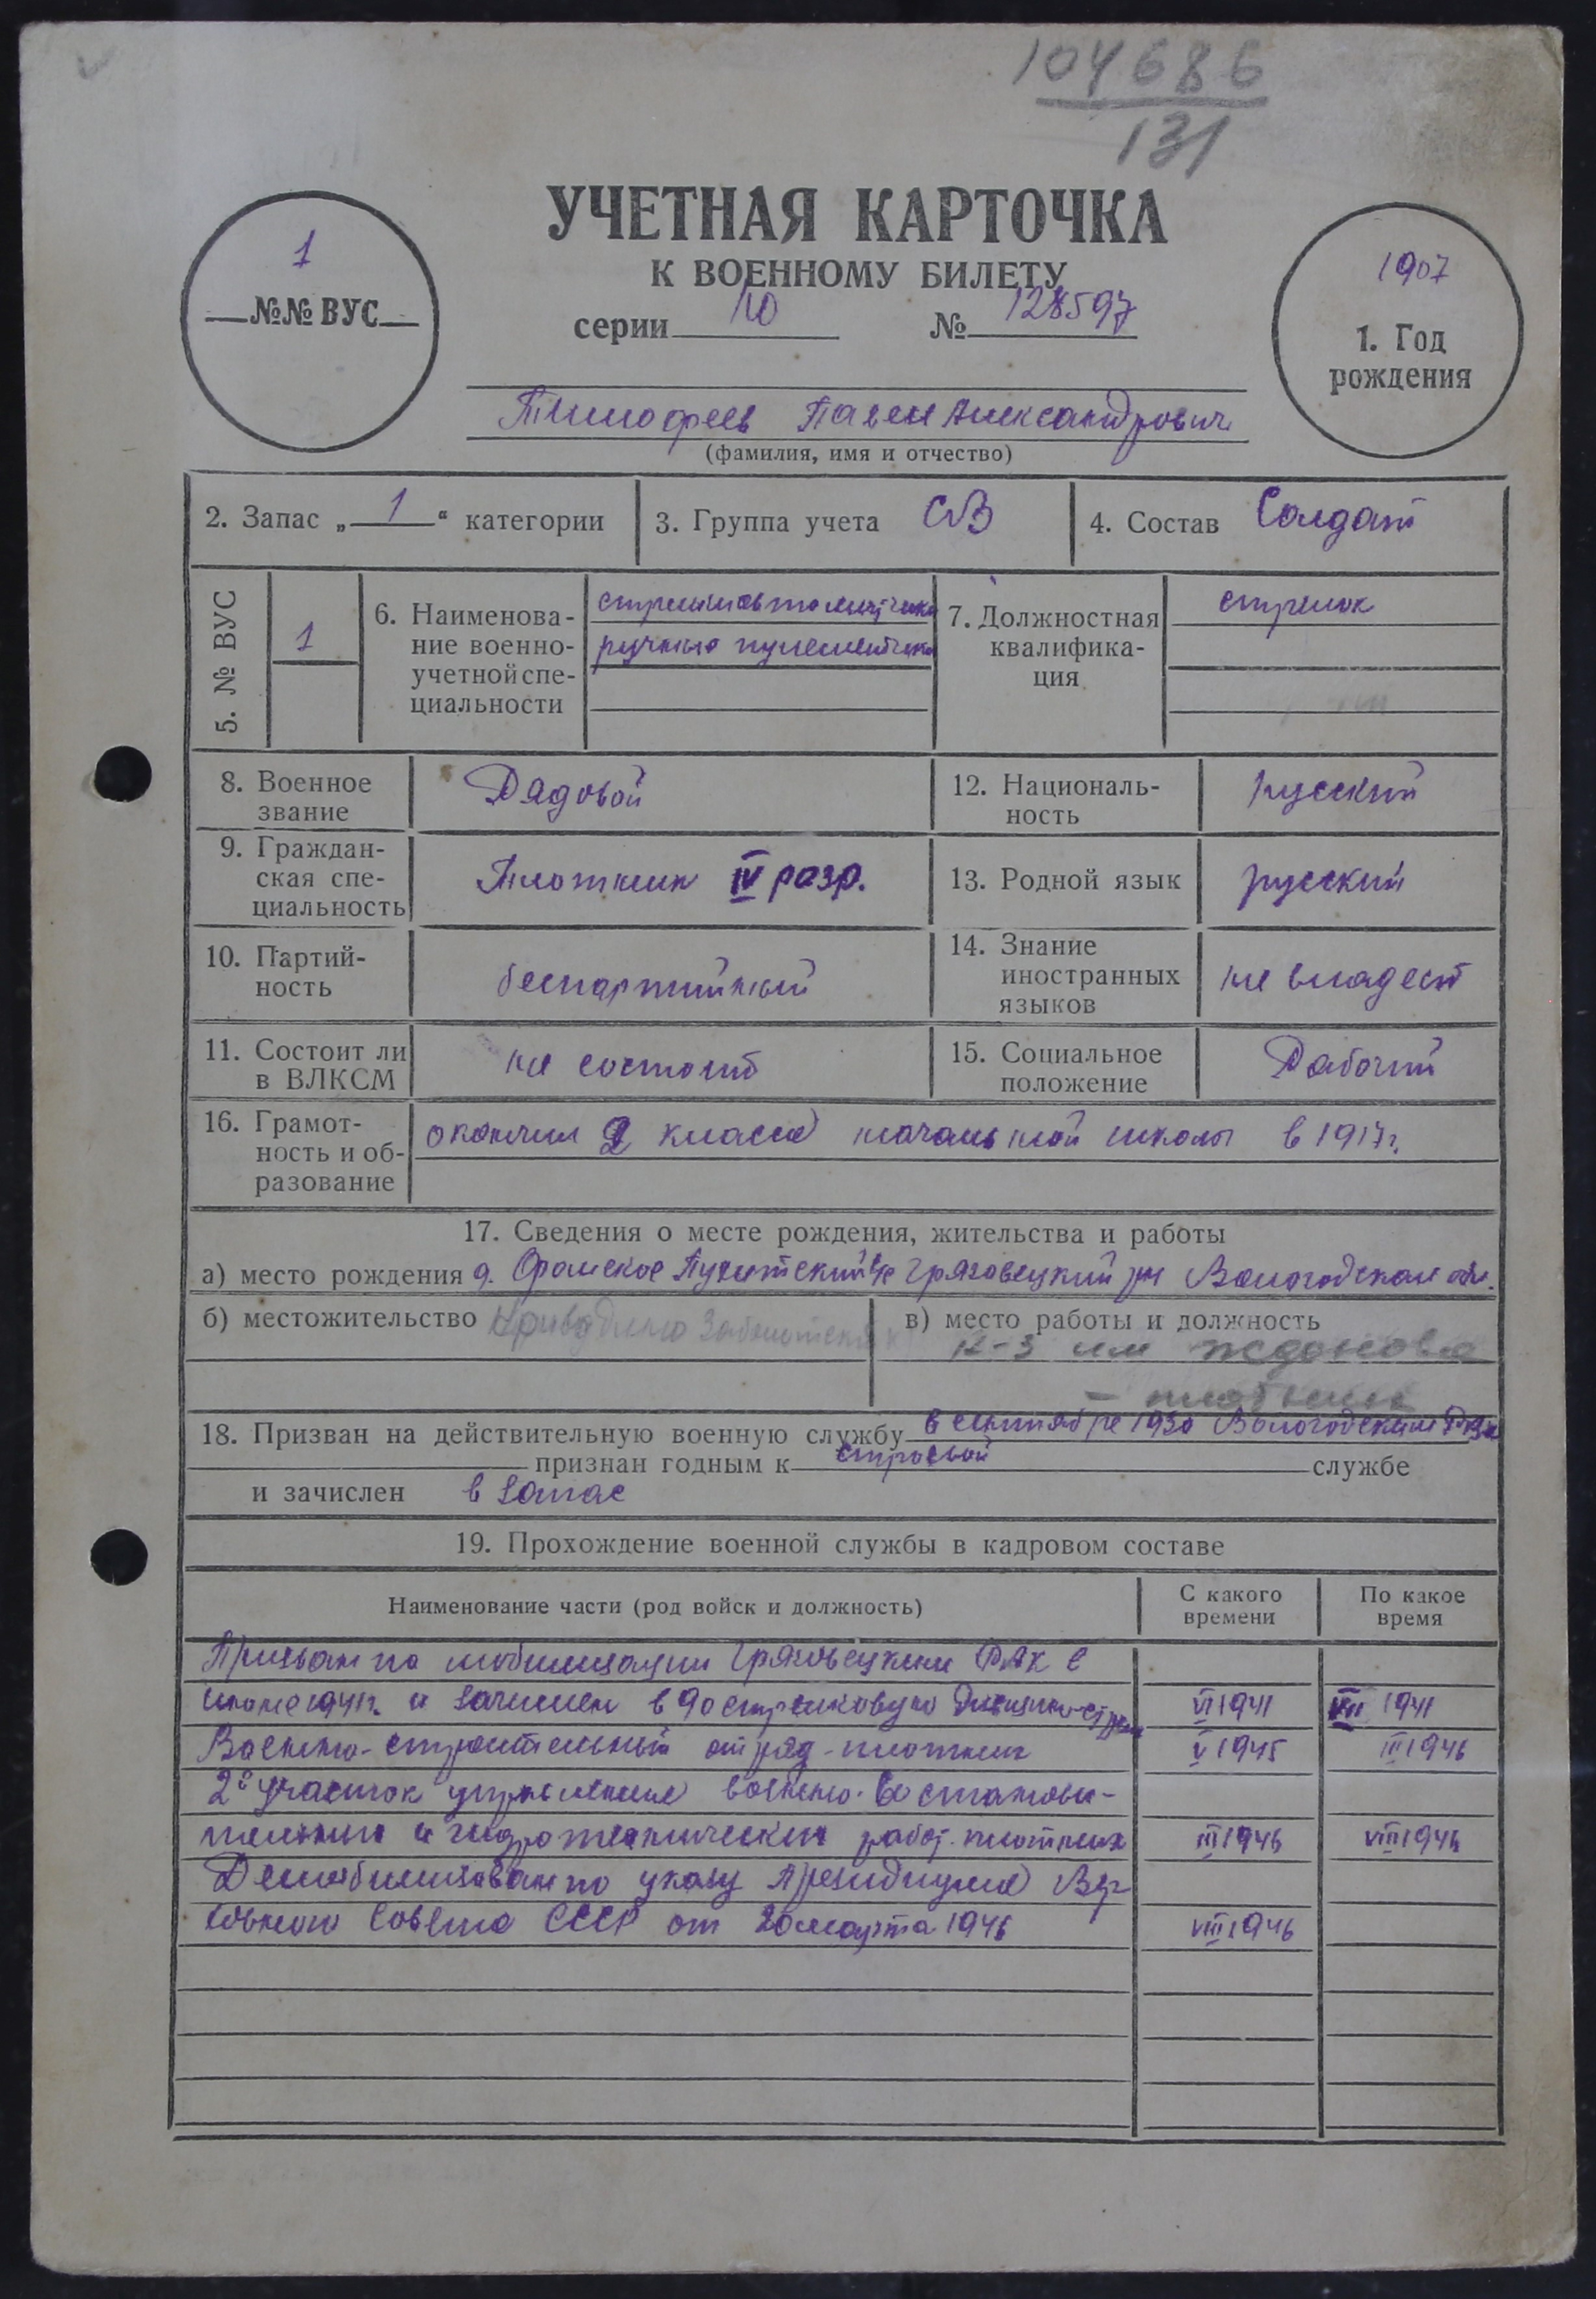 104686
131
УЧЕТНАЯ КАРТОЧКА
К ВОЕННОМУ БИЛЕТУ
серии № 128597
1
№№ ВУС
1907
1. Год
рождения
Тимофеев Павел Александрович
(фамилия, имя и отчество)
2. Запас „ 1 “ категории
3. Группа учета СВ
4. Состав Солдат
5. № ВУС
1
6. Наименова-
ние военно-
учетной спе-
циальности
ручные пулеметчики
7. Должностная
квалифика-
ция
стрелок
8. Военное
звание
Рядовой
12. Националь-
ность
русский
9. Граждан-
ская спе-
циальность
Плотник IV разр.
13. Родной язык
русский
10. Партий-
ность
беспартийный
14. Знание
иностранных
языков
не владеет
11. Состоит ли
в ВЛКСМ
не состоит
15. Социальное
положение
Рабочий
16. Грамот-
ность и об-
разование
окончил 2 класса начальной школы в 1917г.
17. Сведения о месте рождения, жительства и работы
а) место рождения д. Грязовецкий рн Вологодской обл.
б) местожительство
в) место работы и должность
к-з им Жданова
– плотник
18. Призван на действительную военную службу в сентябре 1930 Вологодским РВК
признан годным к строевой службе
и зачислен в запас
19. Прохождение военной службы в кадровом составе
Наименование части (род войск и должность)
С какого
времени
По какое
время
Призван по мобилизации Грязовецким РВК в
июне 1941г. и зачислен в 90 стрелковую дивизию - VI 1941 VIII 1941
Военно-строительный отряд - плотник V 1945 III 1946
2й участок управления военно-востанови-
тельных и гидротехнических работ. плотник III 1946 VIII 1946
Демобилизован по указу Президиума Вер-
ховного Совета СССР от 20 марта 1946 VIII 1946